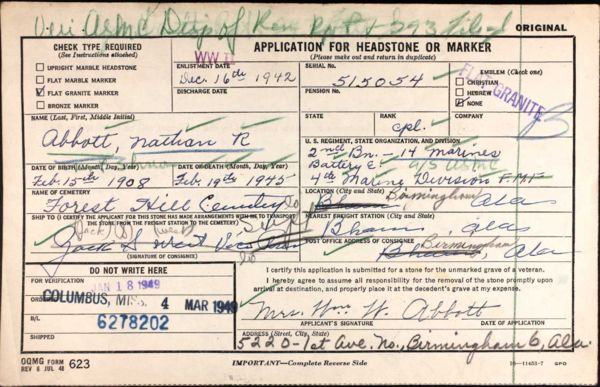 ORIGINAL
CHECK TYPE REQUIRED
(See Instructions attached)
UPRIGHT MARBLE HEADSTONE
FLAT MARBLE MARKER
FLAT GRANITE MARKER
BRONZE MARKER
APPLICATION FOR HEADSTONE OR MARKER
(Please make out and return in duplicate)
WW II
ENLISTMENT DATE
Dec. 16th 1942
DISCHARGE DATE
SERIAL No.
515054
PENSION No.
EMBLEM (Check one)
CHRISTIAN
HEBREW
NONE
FLAT GRANITE
NAME (Last, First, Middle Initial)
Abbott, Nathan R
STATE
RANK
cpl.
U. S. REGIMENT, STATE ORGANIZATION, AND DIVISION
2nd Bn. - 14 Marines
Battery E
4th Marine Division FMF
DATE OF BIRTH (Month, Day, Year)
Feb. 15th 1908
DATE OF DEATH (Month, Day, Year)
Feb 19th 1945
NAME OF CEMETERY
Forest Hill Cemetery
LOCATION (City and State)
Bham Birmingham, Ala
SHIP TO (I CERTIFY THE APPLICANT FOR THIS STONE HAS MADE ARRANGEMENTS WITH ME TO TRANSPORT
THE STONE FROM THE FREIGHT STATION TO THE CEMETERY)
NEAREST FREIGHT STATION (City and State)
Bham, Ala
(SIGNATURE OF CONSIGNEE)
POST OFFICE ADDRESS OF CONSIGNEE
Birmingham
Bham, Ala
DO NOT WRITE HERE
FOR VERIFICATION
JAN 18 1949
COLUMBUS, MISS. 4 MAR 1949
B/L
6278202
SHIPPED
I certify this application is submitted for a stone for the unmarked grave of a veteran.
I hereby agree to assume all responsibility for the removal of the stone promptly upon
arrival at destination, and properly place it at the decedent's grave at my expense.
Mrs. Wm. W. Abbott
APPLICANT'S SIGNATURE
DATE OF APPLICATION
ADDRESS (Street, City, State)
5220-1st Ave. No., Birmingham 6, Ala.
OQMG FORM 623
REV 6 JUL 48
IMPORTANT—Complete Reverse Side
16—11453-7 GPO